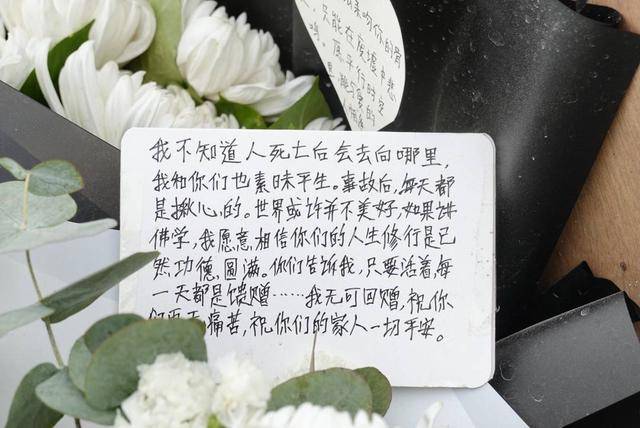 只能在废墟中悲
鸣。愿平行时空
我不知道人死亡后会去向哪里，
我和你们也素昧平生。事故后，每天都
是揪心的。世界或许并不美好，如果讲
佛学，我愿意相信你们的人生修行是已
然功德圆满。你们告诉我，只要活着，每
一天都是馈赠……我无可回赠，祝你
们再无痛苦，祝你们的家人一切平安。